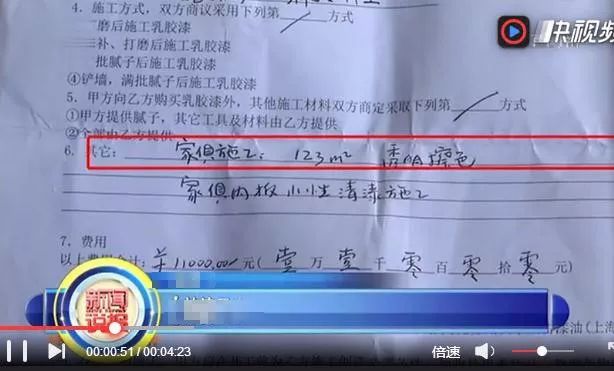 4. 施工方式，双方商议采用下列第 方式
磨后施工乳胶漆
补、打磨后施工乳胶漆
批腻子后施工乳胶漆
④铲墙，满批腻子后施工乳胶漆
5. 甲方向乙方购买乳胶漆外，其他施工材料双方商定采取下列第 方式
①甲方提供腻子，其它工具及材料由乙方提供
②全部由乙方提供
6. 其它： 家俱施工： 123m² 透明擦色
家俱内板水性清漆施工
7. 费用
以上费用合计：￥11000.00/元(壹万壹千零百零拾零
快视频
新闻
说报
漆油(上海
00:00:51/00:04:23
倍速